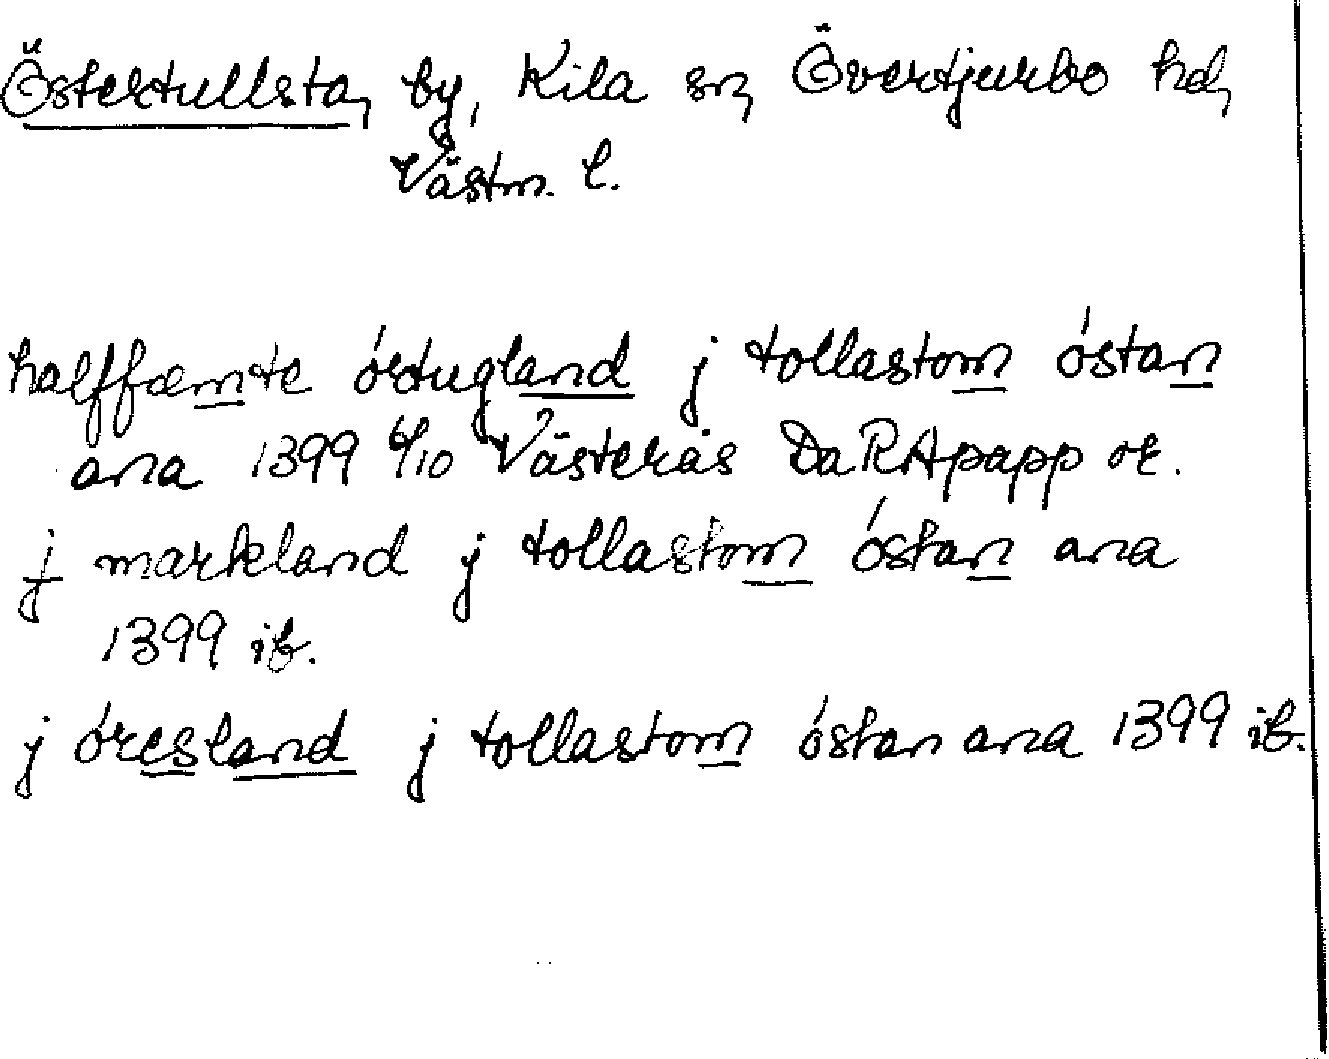 Östertullsta, by, Kila sn, Övertjurbo hd,
Västm. l.
halffæmte órtugland j tollastom óstan
ana 1399 6/10 Västerås DaRApapp or.
j markland j tollastom óstan ana
1399 ib.
j óresland j tollastom óstan ana 1399 ib.